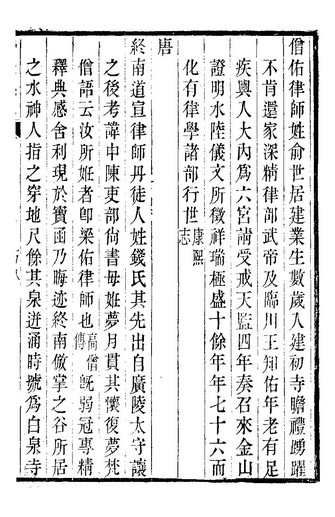 僧佑律師姓俞世居建業生數歲入建初寺瞻禮踴躍
不肯還家深精律部武帝及臨川王知佑年老有足
疾輿入大內為六宮謝受戒天監四年奏召來金山
證明水陸儀文所徵祥瑞極盛十餘年年七十六而
化有律學諸部行世康熙志
唐
終南道宣律師丹徒人姓錢氏其先出自廣陵太守讓
之後考諱申陳吏部尚書母姙夢月貫其懷復夢梵
僧語云汝所姙者即梁佑律師也高僧傳既弱冠專精
釋典感舍利現於寶函乃晦迹終南倣掌之谷所居
之水神人指之穿地尺餘其泉迸涌時號為白泉寺